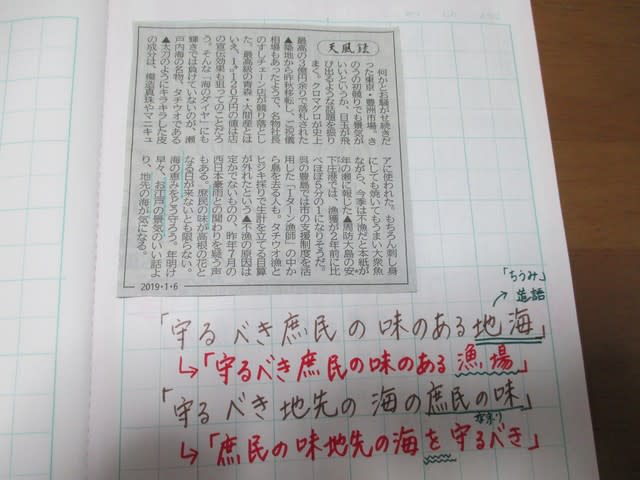 天風録
何かとお騒がせ続きだ
った東京・豊洲市場。き
のうの初競りでも景気が
いいというか、目玉が飛
び出るような話題を振り
まく。クロマグロが史上
最高の3億円余りで落札された
▲築地から昨秋移転し、ご祝儀
相場もあったようで、名物社長
のすしチェーン店が競り落とし
た。最高級の青森・大間産とは
いえ、1㌔120万円の値は店
の宣伝効果も狙ってのことだろ
う。そんな「海のダイヤ」にも
輝きでは負けていないのが、瀬
戸内海の名物、タチウオである
▲太刀のようにキラキラした皮
の成分は、模造真珠やマニキュ
アに使われた。もちろん刺し身
にしても焼いてもうまい大衆魚
ながら、今季は不漁だと本紙が
年の瀬に報じた▲周防大島の安
下庄港では、漁獲が2年前に比
べほぼ5分の1になりそうだ。
呉の豊島では市の支援制度を活
用した「Iターン漁師」の中か
ら島を去る人も。タチウオ漁と
ヒジキ採りで生計を立てる目算
が外れたという▲不漁の原因は
定かでないものの、昨年7月の
西日本豪雨との関わりを疑う声
もある。庶民の味が高根の花と
なる日が来ないとも限らない。
海の恵みをどう守ろう。年明け
早々、お江戸の景気のいい話よ
り、地先の海が気になる。
2019・1・6
「ちうみ」
造語
「守るべき庶民の味のある地海」
「守るべき庶民の味のある漁場」
「守るべき地先の海の庶民の味」
「庶民の味地先の海を守るべき」